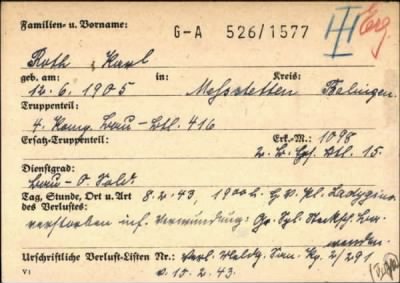 Familien- u. Vorname: G-A 526/1577 Erg.
Roth, Karl
geb. am: in: Kreis:
12.6.1905 Messtetten Balingen
Truppenteil:
4. Komp. Bau-Btl. 416
Ersatz-Truppenteil: Erk.-M.: 1098
2. B. Btl. 15.
Dienstgrad:
Bau-O. Sold.
Tag, Stunde, Ort u. Art 8.2.43, 1900 h H.V.Pl. Ladygino
des Verlustes:
verstorben inf. Verwundung: Gr. Spl.
wunden.
Urschriftliche Verlust-Listen Nr.: Verl. Meldg. San. Kp. 2/291
V1 v. 10.2.43.